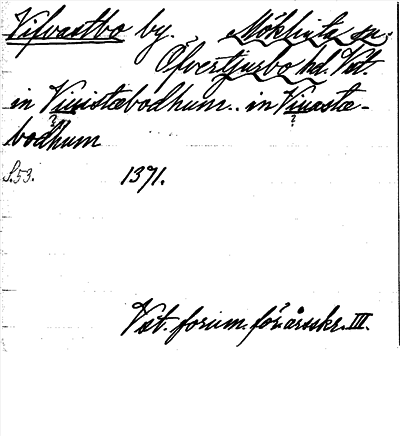 Vifvastbo by. Möklinta sn.
Öfvertjurbo hd. Vst.
in Viuistæbodhum.. in Viuastæ-
bodhum
S. 53. 1371.
Vst. fornm. för. årsskr. III.